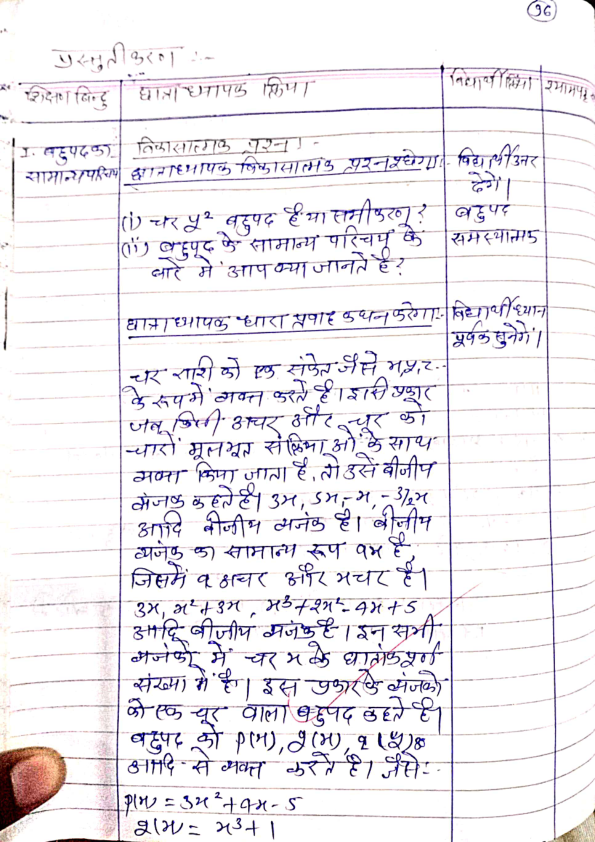 36
प्रस्तुतीकरण :-
शिक्षण बिन्दु छात्राध्यापक क्रिया विद्यार्थी क्रिया श्यामपट्ट
I. बहुपद का विकासात्मक प्रश्न :-
सामान्य परिचय छात्राध्यापक विकासात्मक प्रश्न पूछेगा :- विद्यार्थी उत्तर
देगें।
(i) चर y² बहुपद है या समीकरण? बहुपद
(ii) बहुपद के सामान्य परिचय के समस्यात्मक
बारे में आप क्या जानते है?
छात्राध्यापक धारा प्रवाह कथन करेगा :- विद्यार्थी ध्यान
पूर्वक सुनेगें।
चर राशी को एक संकेत जैसे x, y, z..
के रूप में व्यक्त करते है। इसी प्रकार
जब किसी अचर और चर को
चारों मूलभूत संक्रियाओं के साथ
व्यक्त किया जाता है, तो उसे बीजीय
व्यंजक कहते है। 3x, 5x, -x, -3/2x
आदि बीजीय व्यजंक है। बीजीय
व्यजंक का सामान्य रूप ax है,
जिसमें a अचर और x चर है।
3x, x²+3x, x³+2x²-4x+5
आदि बीजीय व्यजंक है। इन सभी
व्यजंको में चर x के घातांक पूर्ण
संख्या में है। इस प्रकार के व्यंजको
को एक चर वाला बहुपद कहते है।
बहुपद को p(x), q(x), r(y)
आदि से व्यक्त करते है। जैसे :-
p(x) = 3x²+4x-5
q(x) = x³+1